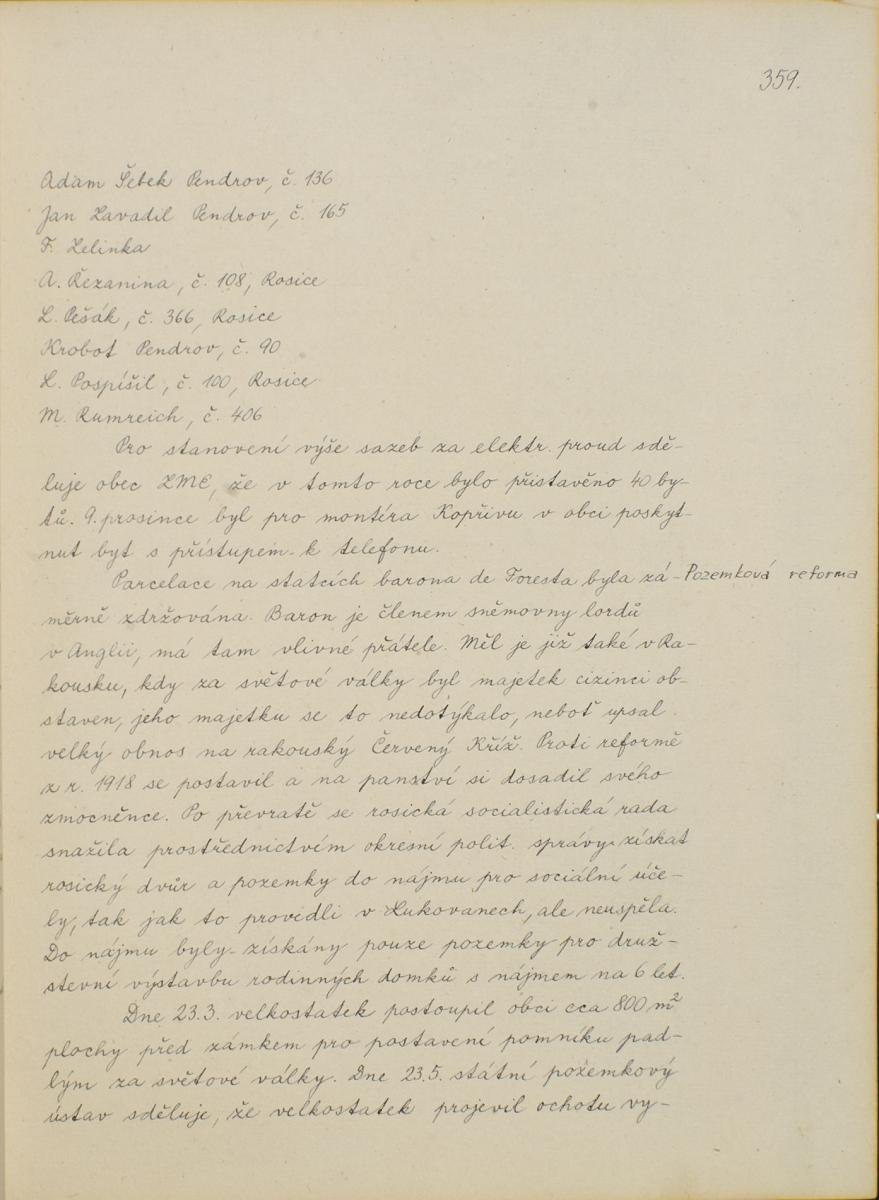 359.
Adam Šebek Pendrov, č. 136
Jan Zavadil Pendrov, č. 165
F. Zelinka
A. Řezanina, č. 108, Rosice
L. Pešák, č. 366, Rosice
Krobot Pendrov, č. 90
L. Pospíšil, č. 100, Rosice
M. Rumreich, č. 406
Pro stanovení výše sazeb za elektr. proud sdě-
luje obec ZME, že v tomto roce bylo přistavěno 40 by-
tů. 9. prosince byl pro montéra Kopřivu v obci poskyt-
nut byt s přístupem k telefonu.
Parcelace na statcích barona de Foresta byla zá-
Pozemková reforma
měrně zdržována. Baron je členem sněmovny lordů
v Anglii, má tam vlivné přátele. Měl je již také v Ra-
kousku, kdy za světové války byl majetek cizinci ob-
staven, jeho majetku se to nedotýkalo, neboť upsal
velký obnos na rakouský Červený Kříž. Proti reformě
z r. 1918 se postavil a na panství si dosadil svého
zmocněnce. Po převratě se rosická socialistická rada
snažila prostřednictvím okresní polit. správy získat
rosický dvůr a pozemky do nájmu pro sociální úče-
ly, tak jak to providli v Lukovanech, ale neuspěla.
Do nájmu byly získány pouze pozemky pro druž-
stevní výstavbu rodinných domků s nájmem na 6 let.
Dne 23.3. velkostatek postoupil obci cca 800 m²
plochy před zámkem pro postavení pomníku pad-
lým za světové války. Dne 23.5. státní požemkový
ústav sděluje, že velkostatek projevil ochotu vy-